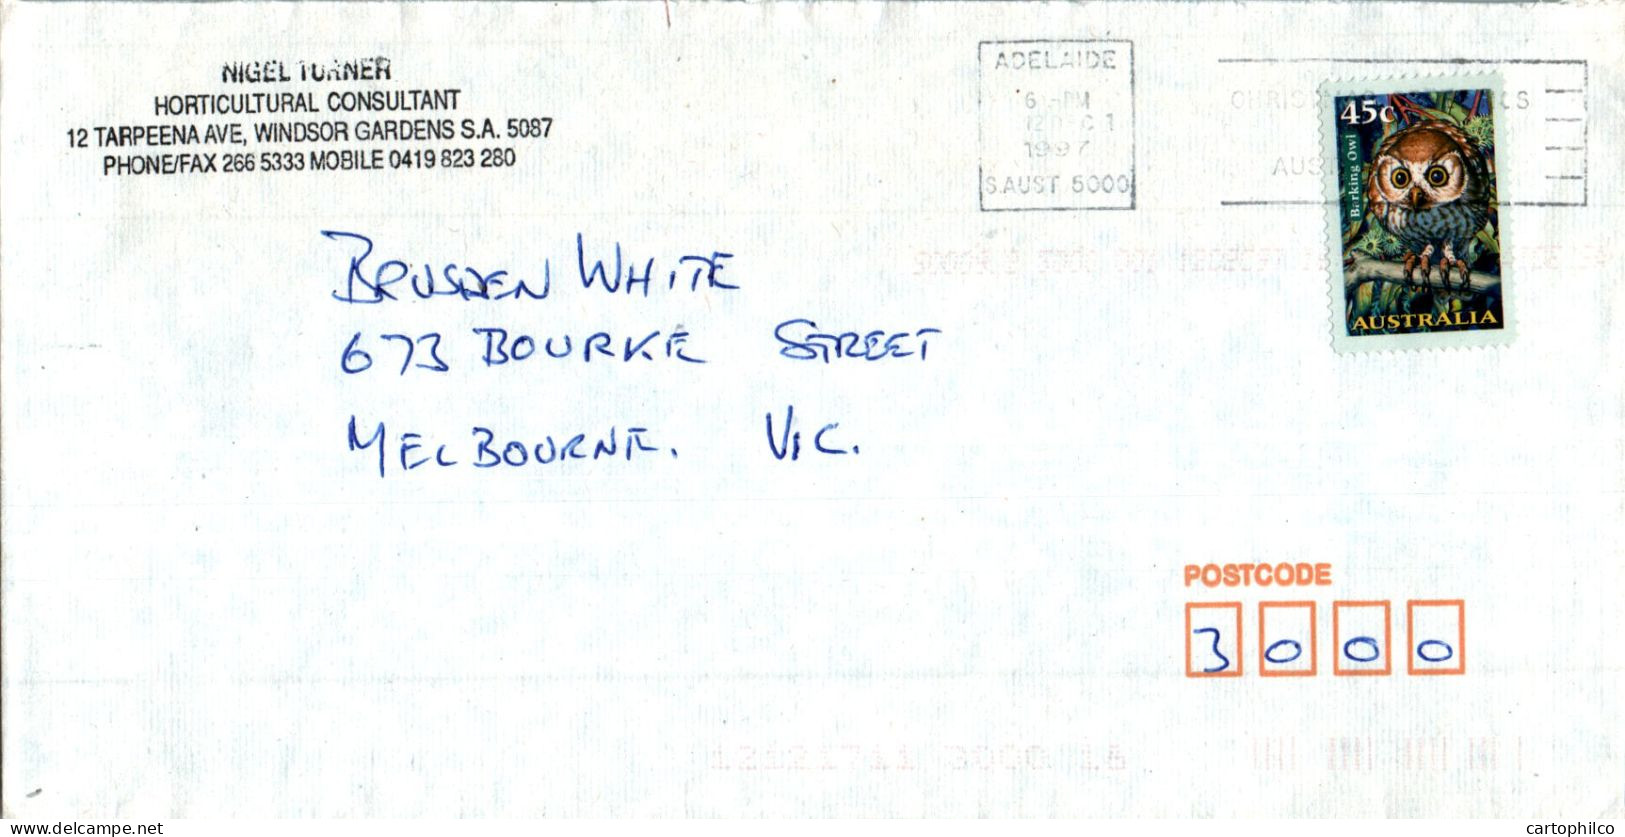 NIGEL TURNER
HORTICULTURAL CONSULTANT
12 TARPEENA AVE, WINDSOR GARDENS S.A. 5087
PHONE/FAX 266 5333 MOBILE 0419 823 280
ADELAIDE
6-PM
1997
S.AUST. 5000
45c
Barking Owl
AUSTRALIA
BRUSDEN WHITE
673 BOURKE STREET
MELBOURNE. VIC.
POSTCODE
3000
cartophilco